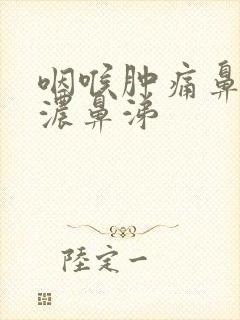 咽喉肿痛鼻
浓鼻涕
陸定一